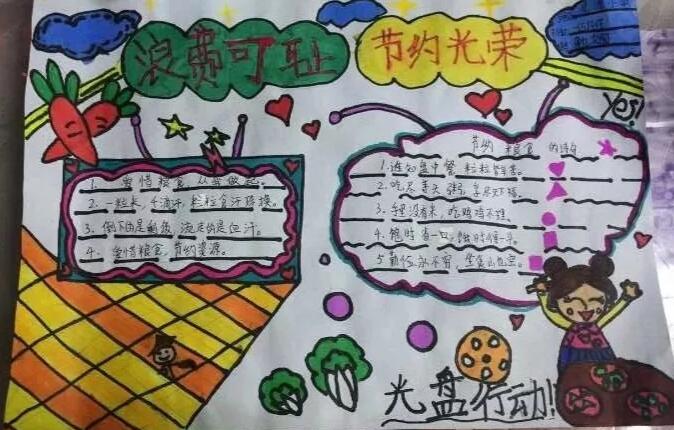 浪费可耻
节约光荣
Yes!
节约 粮食 的诗句
1. 爱惜粮食，从我做起。
2. 一粒米，千滴汗，粒粒食汗珠换。
3. 倒下的是剩饭，流走的是血汗。
4. 爱惜粮食，节约资源。
1. 谁知盘中餐 粒粒皆辛苦。
2. 吃尽
4. 饱时省一口，饿时得一斗。
5 勤俭永不穷，坐食山也空。
光盘行动!